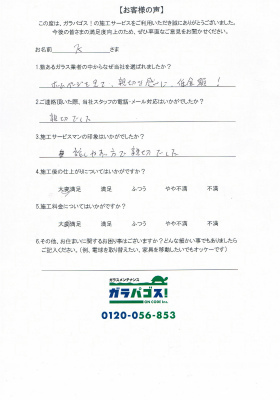 【お客様の声】
この度は、ガラパゴス！の施工サービスをご利用いただき誠にありがとうございました。
今後の皆さまの満足度向上のため、ぜひ率直なご意見をお聞かせください。
お名前 K さま
1.数あるガラス業者の中からなぜ当社を選ばれましたか？
ホームページを見て、親切な感じ、低金額！
2.ご連絡頂いた際、当社スタッフの電話・メール対応はいかがでしたか？
親切でした
3.施工サービスマンの印象はいかがでしたか？
話しやすい方で親切でした
4.施工後の仕上がりについてはいかがですか？
大変満足 満足 ふつう やや不満 不満
5.施工料金についてはいかがですか？
大変満足 満足 ふつう やや不満 不満
6.その他、お住まいに関するお困り事はございますか？どんな細かい事でもありましたら
ご記入ください。（例、電球を取り替えたい、家具を移動したいでもオッケーです）
ガラスメンテナンス
ガラパゴス！
0120-056-853